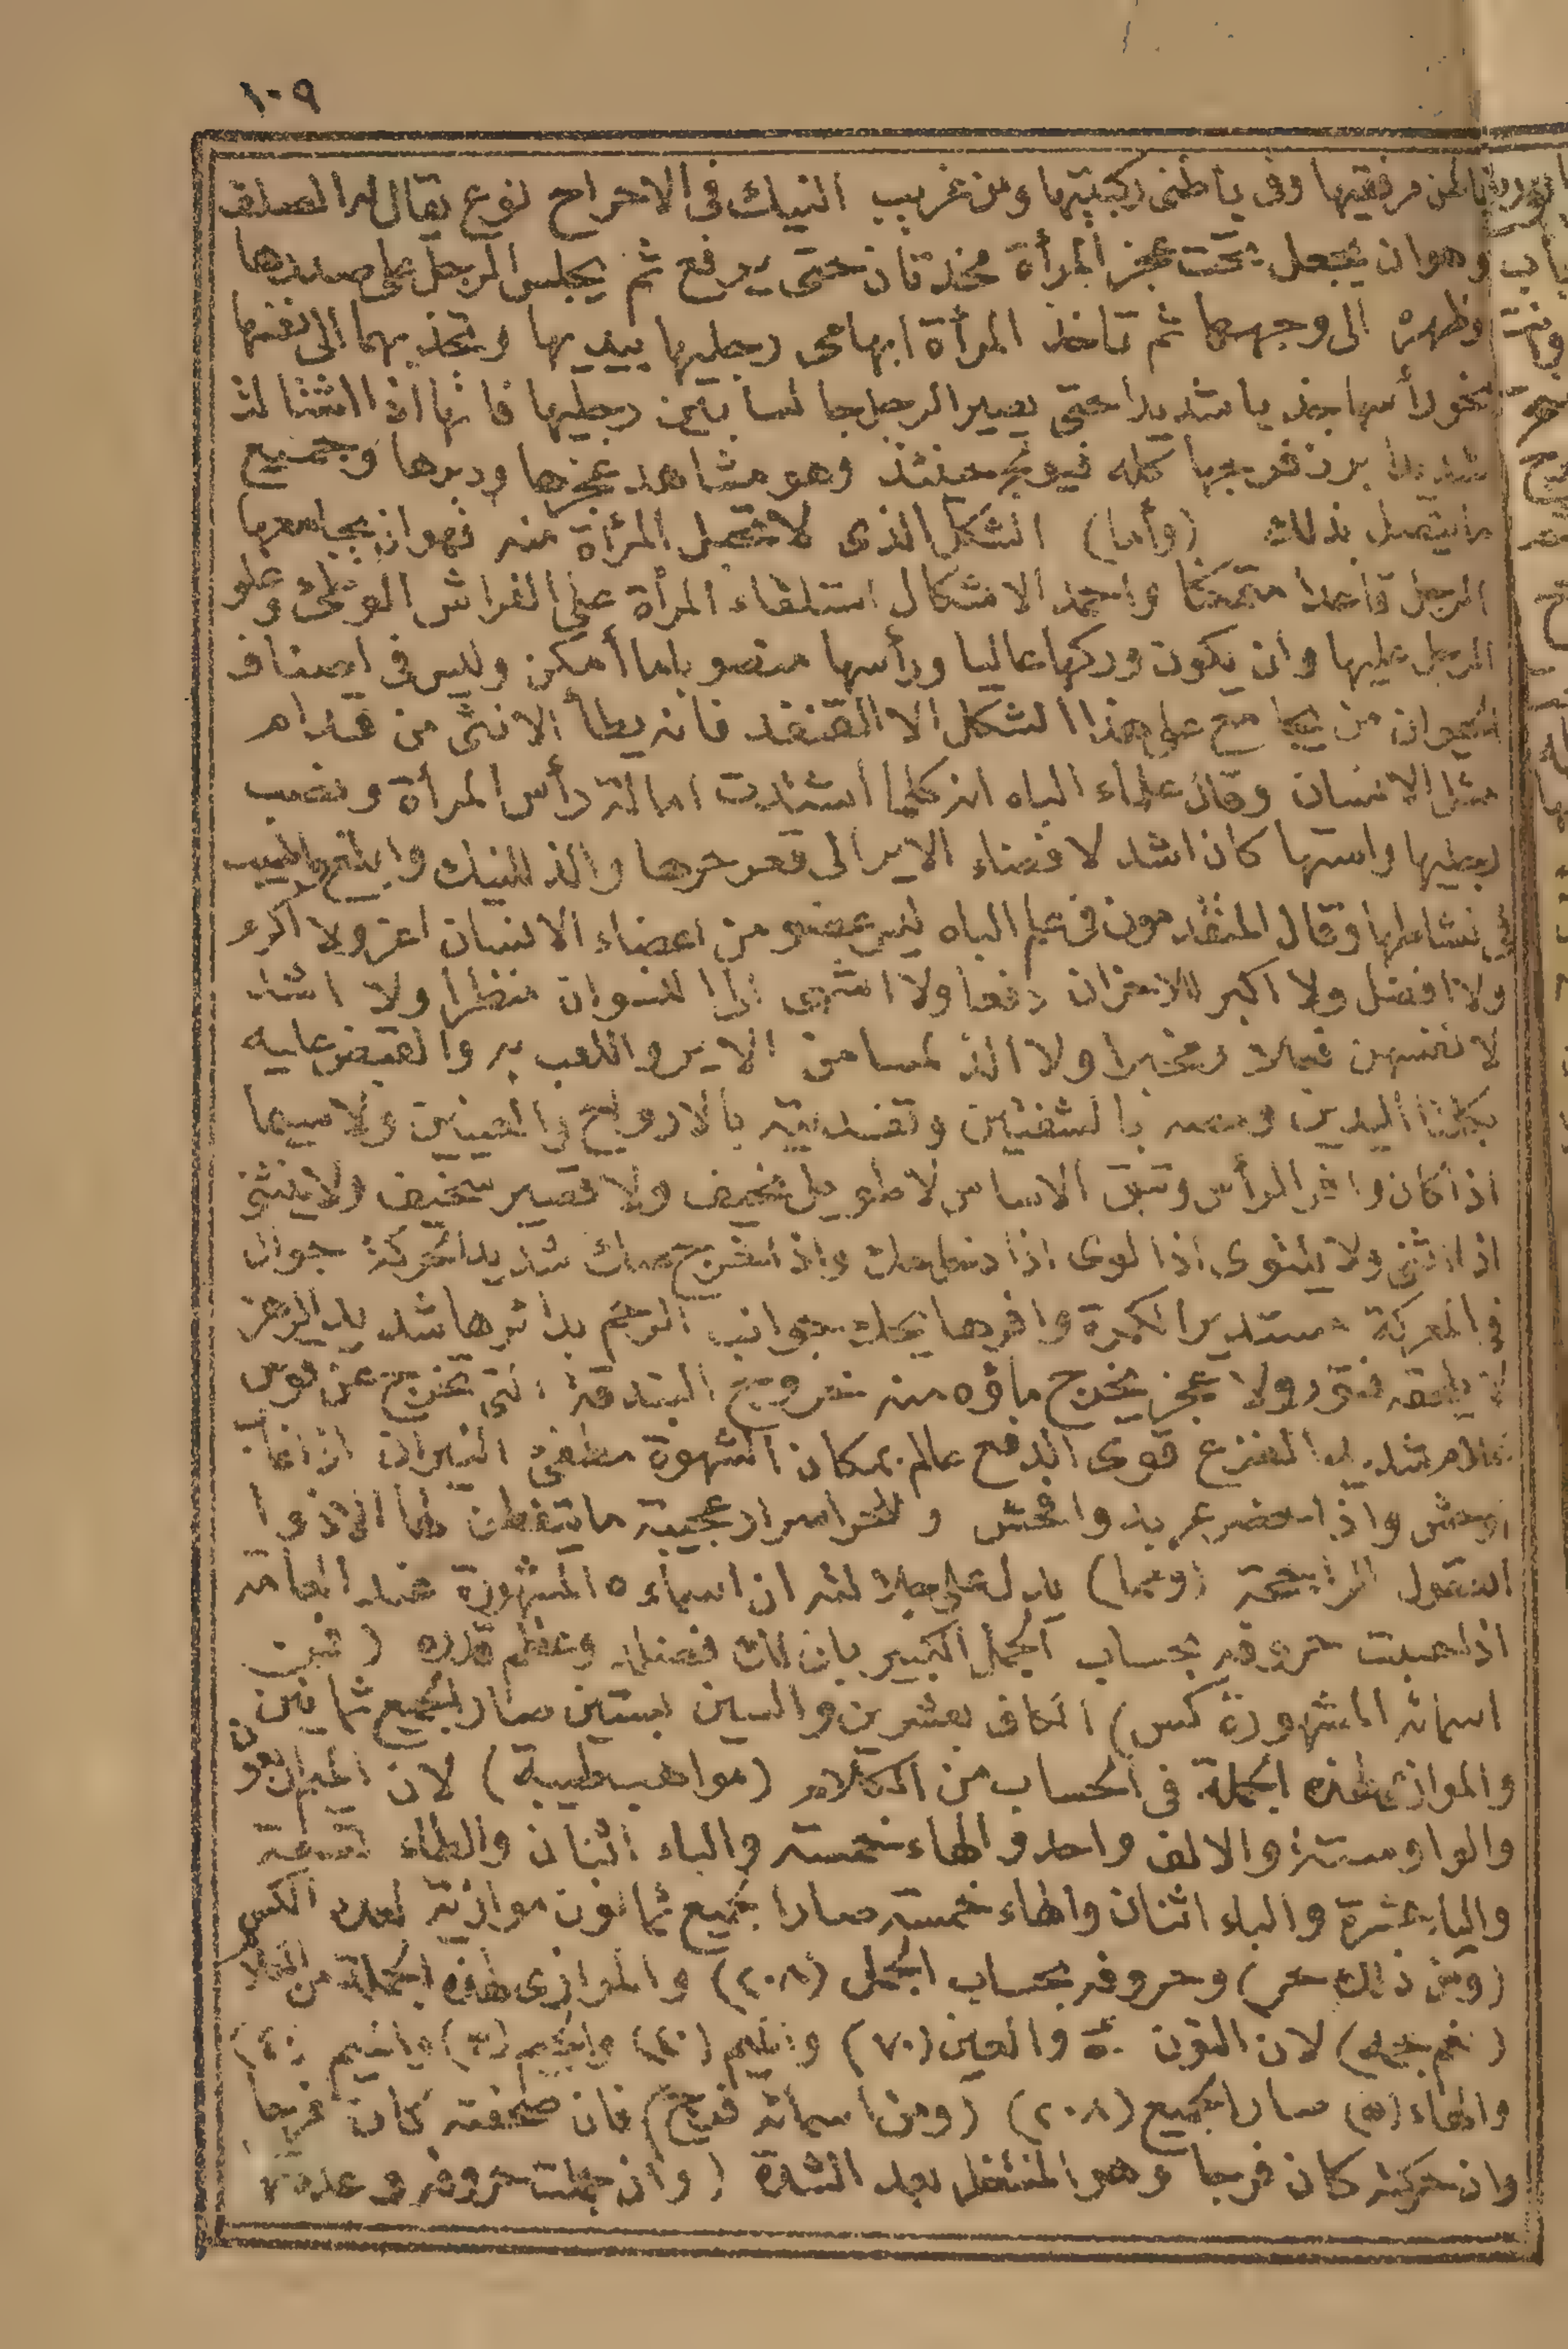 ١٠٩
باطن مرفقيها وفى باطنى ركبتيها ومن غريب النيك فى الاحراح نوع يقال له المصلف
وهو ان يجعل تحت عجز المرأة مخدتان حتى يرفع ثم يجلس الرجل على صدرها
وظهره الى وجهها ثم تاخذ المرأة ابهامى رجليها بيديها وتجذبهما الى نفسها
نحو رأسها جذبا شديدا حتى يصير الرجل جالسا بين رجليها فانها اذا اشتالت
شديدا برز فرجها كله فيولج حينئذ وهو مشاهد عجزها ودبرها وجميع
ما يتصل بذلك (وأما) الشكل الذى لا تحمل المرأة منه فهو ان يجامعها
الرجل قاعدا متمكنا واحمد الاشكال استلقاء المرأة على الفراش الوطئ وعلو
الرجل عليها وان يكون وركها عاليا ورأسها منصوبا ما أمكن وليس فى اصناف
الحيوان من يجامع على هذا الشكل الا القنفد فانه يطأ الانثى من قدام
مثل الانسان وقال علماء الباه انه كلما اشتدت امالة رأس المرأة ونصب
رجليها واستها كان اشد لافضاء الاير الى قعر حرها والذ للنيك وابلغ
فى نشاطها وقال المتقدمون فى علم الباه ليس عضو من اعضاء الانسان اعز ولا اكرم
ولا افضل ولا اكبر للاحزان دفعا ولا اشهى الى النسوان منظرا ولا اشد
لانفسهن ومخبرا ولا الذ لمسا من الاير واللعب به والقبض عليه
بكلتا اليدين ومصه بالشفتين وتفديته بالارواح والعينين ولاسيما
اذا كان وافر الرأس وثيق الاساس لا طويل نحيف ولا قصير سخيف ولا ينثنى
اذا انثنى ولا يلتوى اذا لوى اذا دخل حك واذا خرج صك شديد الحركة جوال
فى المعركة مستدير الكمرة وافرها يحك جوانب الرحم بدائرها شديد الرهز
لا يلحقه فتور ولا عجز يخرج ماؤه منه خروج البندقة التى تخرج عن قوس
غلام شديد المنزع قوى الدفع عالم بمكان الشهوة مطفئ النيران اذا غاب
اوحش واذا حضر عربد وافحش وللحر اسرار عجيبة ما يتفطن لها الا ذووا
العقول الراجحة (ومما) يدل على جلالته ان اسماءه المشهورة عند العامة
اذا حسبت حروفه بحساب الجمل الكبير بان لك فضله وعظم قدره (فمن
اسمائه المشهورة كس) الكاف بعشرين والسين بستين صار الجميع ثمانين
والموازى لهذه الجملة فى الحساب من الكلام (مواهب طيبة) لان الميم باربعون
والواو ستة والالف واحد والهاء خمسة والباء اثنان والطاء تسعة
والياء عشرة والباء اثنان والهاء خمسة صار الجميع ثمانون موازية لعدد الكس
(ومن ذلك حر) وحروفه بحساب الجمل (٢٠٨) والموازى لهذه الجملة من الكلام
لان النون ٥٠ والعين (٧٠) والميم (٤٠) والجيم (٣) والميم (٤٠)
والهاء (٥) صار الجميع (٢٠٨) (ومن اسمائه فرج) فان صحفته كان فرحا
وان حركته كان فرجا وهو المنتظر بعد الشدة (وان جملت حروفه وعددته